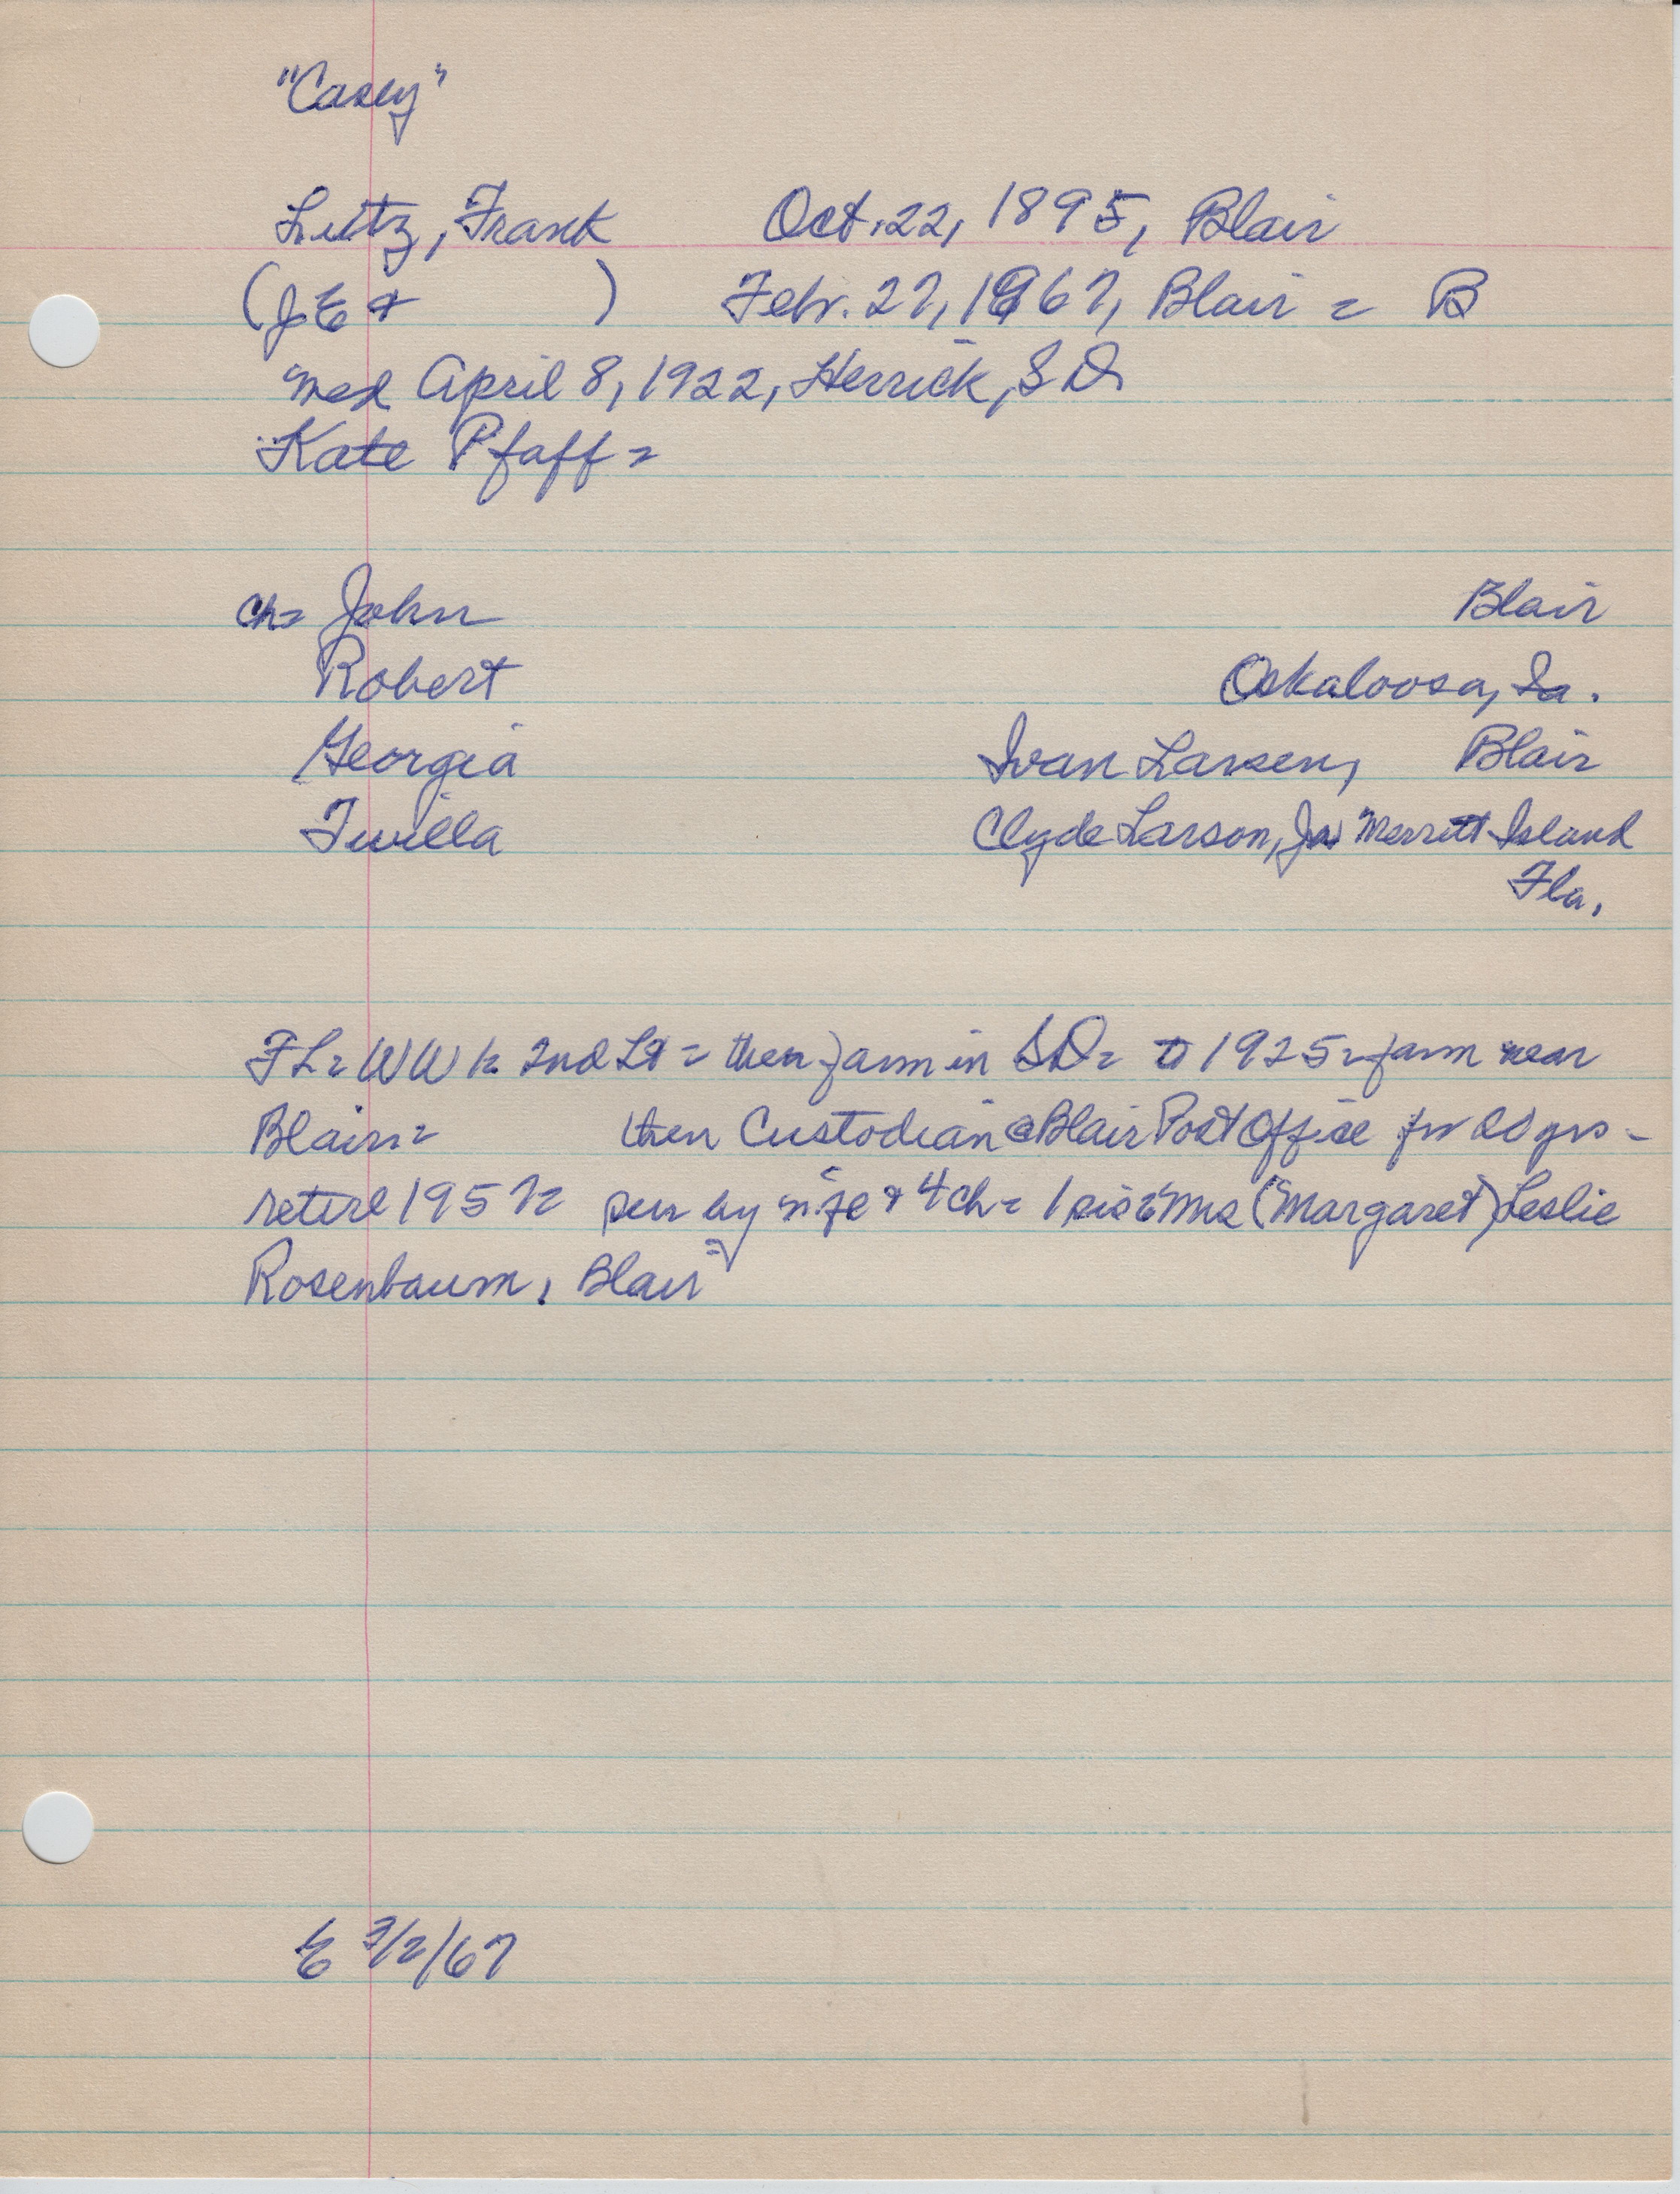 "Casey"
Lutz, Frank Oct. 22, 1895, Blair
(J E & ) Febr. 27, 1967, Blair = B
med April 8, 1922, Herrick, S D
Kate Pfaff =
Ch= John Blair
Robert Oskaloosa, Ia.
Georgia Ivan Larsen, Blair
Twilla Clyde Larson, Jr Merritt Island
Fla.
FL= WW 1= 2nd Lt = then farm in SD= to 1925= farm near
Blair= then Custodian @ Blair Post Office for 20 yrs -
retire 1957= sur by wife & 4 ch = 1 sis = Mrs (Margaret) Leslie
Rosenbaum, Blair =
E 3/2/67